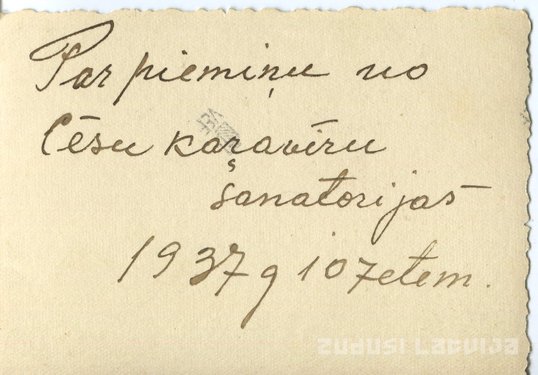 Par piemiņu no
Cēsu kaŗavīru
sanatorijas
1937 g 10 7etem.
zudusi Latvija